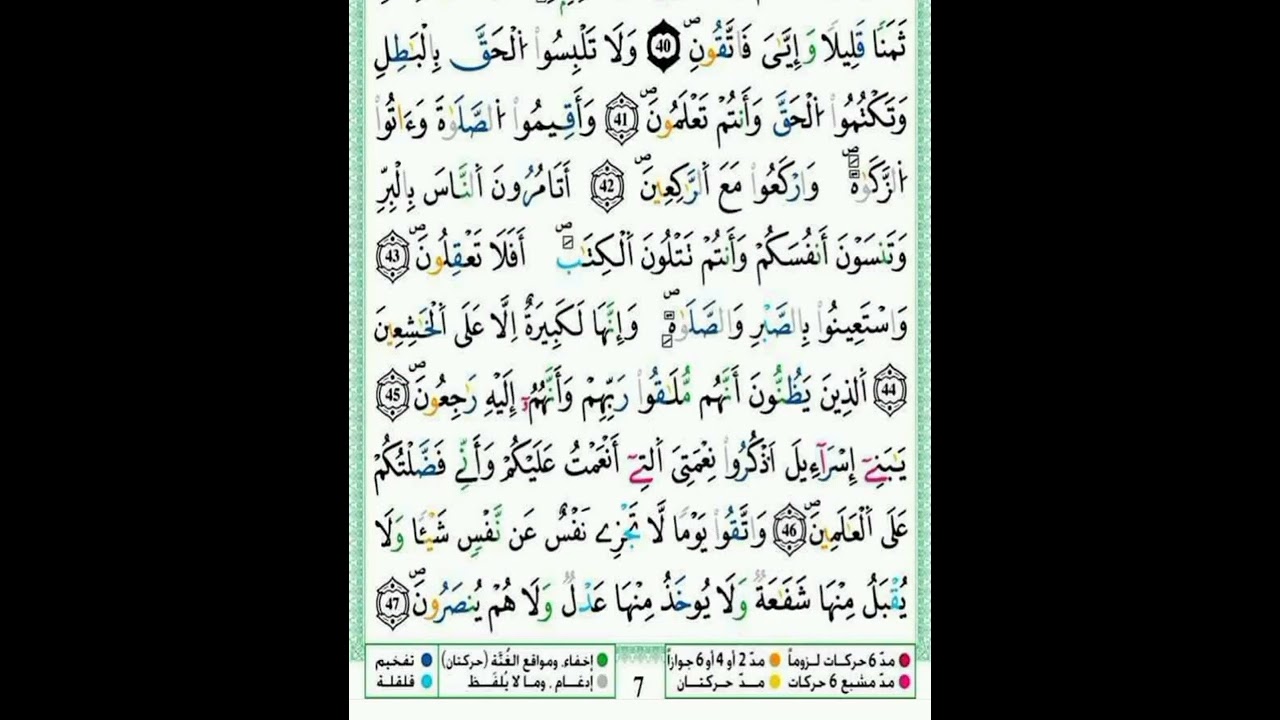 ثَمَنٗا قَلِيلٗا وَإِيَّٰيَ فَاتَّقُونِۖ 40 وَلَا تَلْبِسُواْ اُ۬لْحَقَّ بِالْبَٰطِلِ
وَتَكْتُمُواْ اُ۬لْحَقَّ وَأَنتُمْ تَعْلَمُونَۖ 41 وَأَقِيمُواْ اُ۬لصَّلَوٰةَ وَءَاتُواْ
اُ۬لزَّكَوٰةَۖ وَارْكَعُواْ مَعَ اَ۬لرَّٰكِعِينَۖ 42 أَتَامُرُونَ اَ۬لنَّاسَ بِالْبِرِّ
وَتَنسَوْنَ أَنفُسَكُمْ وَأَنتُمْ تَتْلُونَ اَ۬لْكِتَٰبَۖ أَفَلَا تَعْقِلُونَۖ 43
وَاسْتَعِينُواْ بِالصَّبْرِ وَالصَّلَوٰةِۖ وَإِنَّهَا لَكَبِيرَةٌ اِلَّا عَلَى اَ۬لْخَٰشِعِينَ
44 اَ۬لذِينَ يَظُنُّونَ أَنَّهُم مُّلَٰقُواْ رَبِّهِمْ وَأَنَّهُمُۥٓ إِلَيْهِ رَٰجِعُونَۖ 45
يَٰبَنِےٓ إِسْرَآءِيلَ اَ۟ذْكُرُواْ نِعْمَتِيَ اَ۬لتِےٓ أَنْعَمْتُ عَلَيْكُمْ وَأَنِّے فَضَّلْتُكُمْ
عَلَى اَ۬لْعَٰلَمِينَۖ 46 وَاتَّقُواْ يَوْمٗا لَّا تَجْزِے نَفْسٌ عَن نَّفْسٖ شَيْـٔٗا وَلَا
يُقْبَلُ مِنْهَا شَفَٰعَةٞ وَلَا يُوخَذُ مِنْهَا عَدْلٞ وَلَا هُمْ يُنصَرُونَۖ 47
مدّ 6 حركات لزوماً مدّ 2 أو 4 أو 6 جوازاً إخفاء، ومواقع الغُنَّة (حركتان) تفخيم
مدّ مشبع 6 حركات مدّ حركتان 7 إدغام ، وما لا يُلفَظ قلقلة